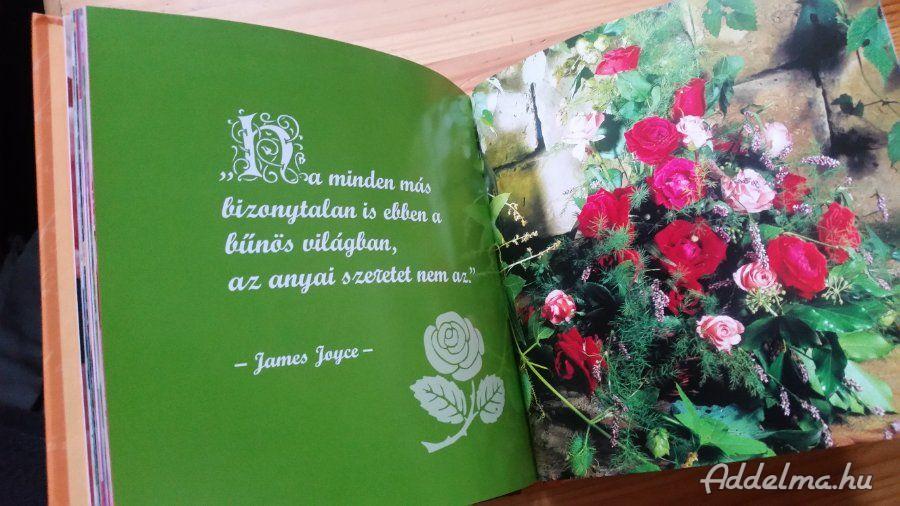 „Ha minden más
bizonytalan is ebben a
bűnös világban,
az anyai szeretet nem az.”
– James Joyce –
Addelma.hu